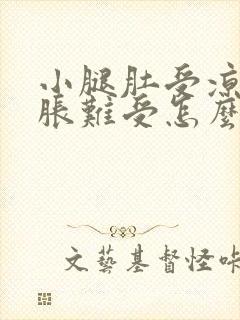 小腿肚受凉
胀難受怎麼
文藝基督怪咔